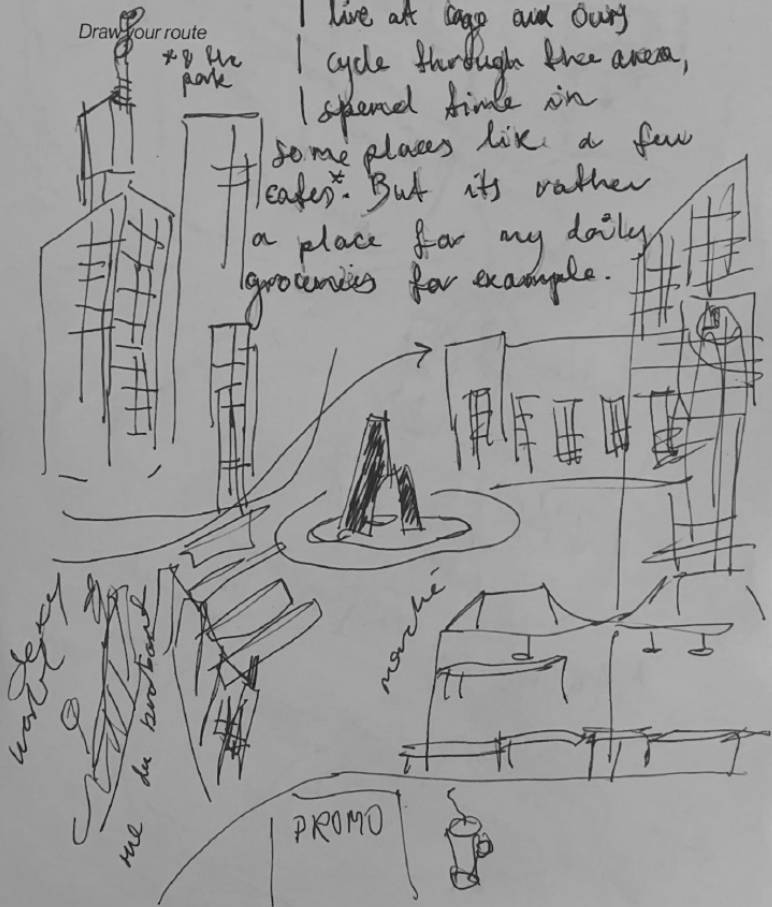 Draw your route
* & the
park
I live at cage aux Ours
I cycle through the area,
I spend time in
some places like a few
cafes*. But its rather
a place for my daily
groceries for example.
marché
rue du brabant
PROMO